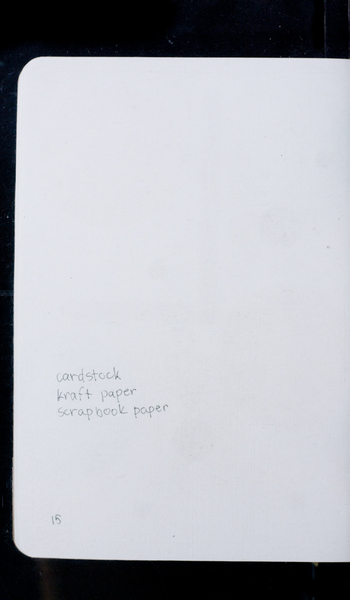 cardstock
kraft paper
scrapbook paper
15